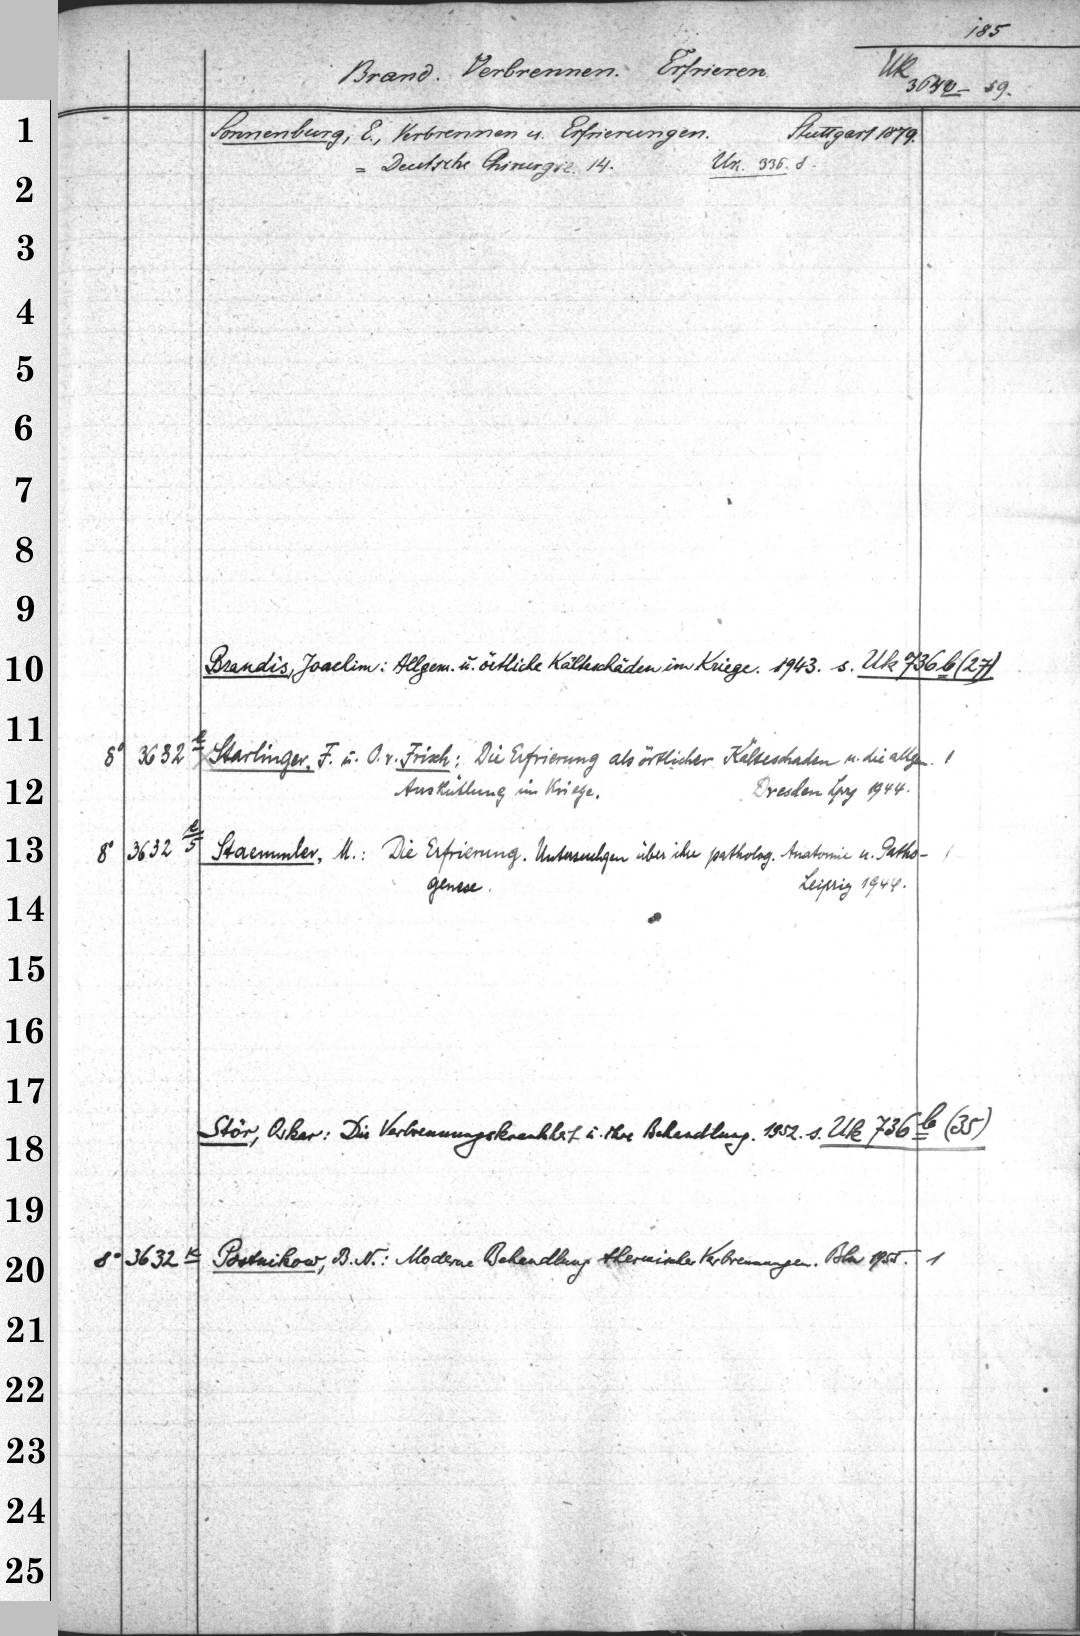 185
Brand. Verbrennen. Erfrieren. Uk
3630 - 39.
1 Sonnenburg, E., Verbrennen u. Erfrierungen. Stuttgart 1879.
= Deutsche Chirurgie. 14. Un. 336. 8.
2
3
4
5
6
7
8
9
10 Brandis, Joachim: Allgem. u. örtliche Kälteschäden im Kriege. 1943. s. Uk 736 b (27)
11
8° 3632 e Starlinger, F. u. O. v. Frisch: Die Erfrierung als örtlicher Kälteschaden u. die allgem. 1
12 Auskühlung im Kriege. Dresden Lpzg 1944.
13 8° 3632 e/5 Staemmler, M.: Die Erfrierung. Untersuchgen über ihre patholog. Anatomie u. Patho- 1
genese. Leipzig 1944.
14
15
16
17
18 Stör, Oskar: Die Verbrennungskrankheit u. ihre Behandlung. 1952. s. Uk 736 b (35)
19
20 8° 3632 k Postnikow, B. N.: Moderne Behandlung thermischer Verbrennungen. Bln 1955. 1
21
22
23
24
25